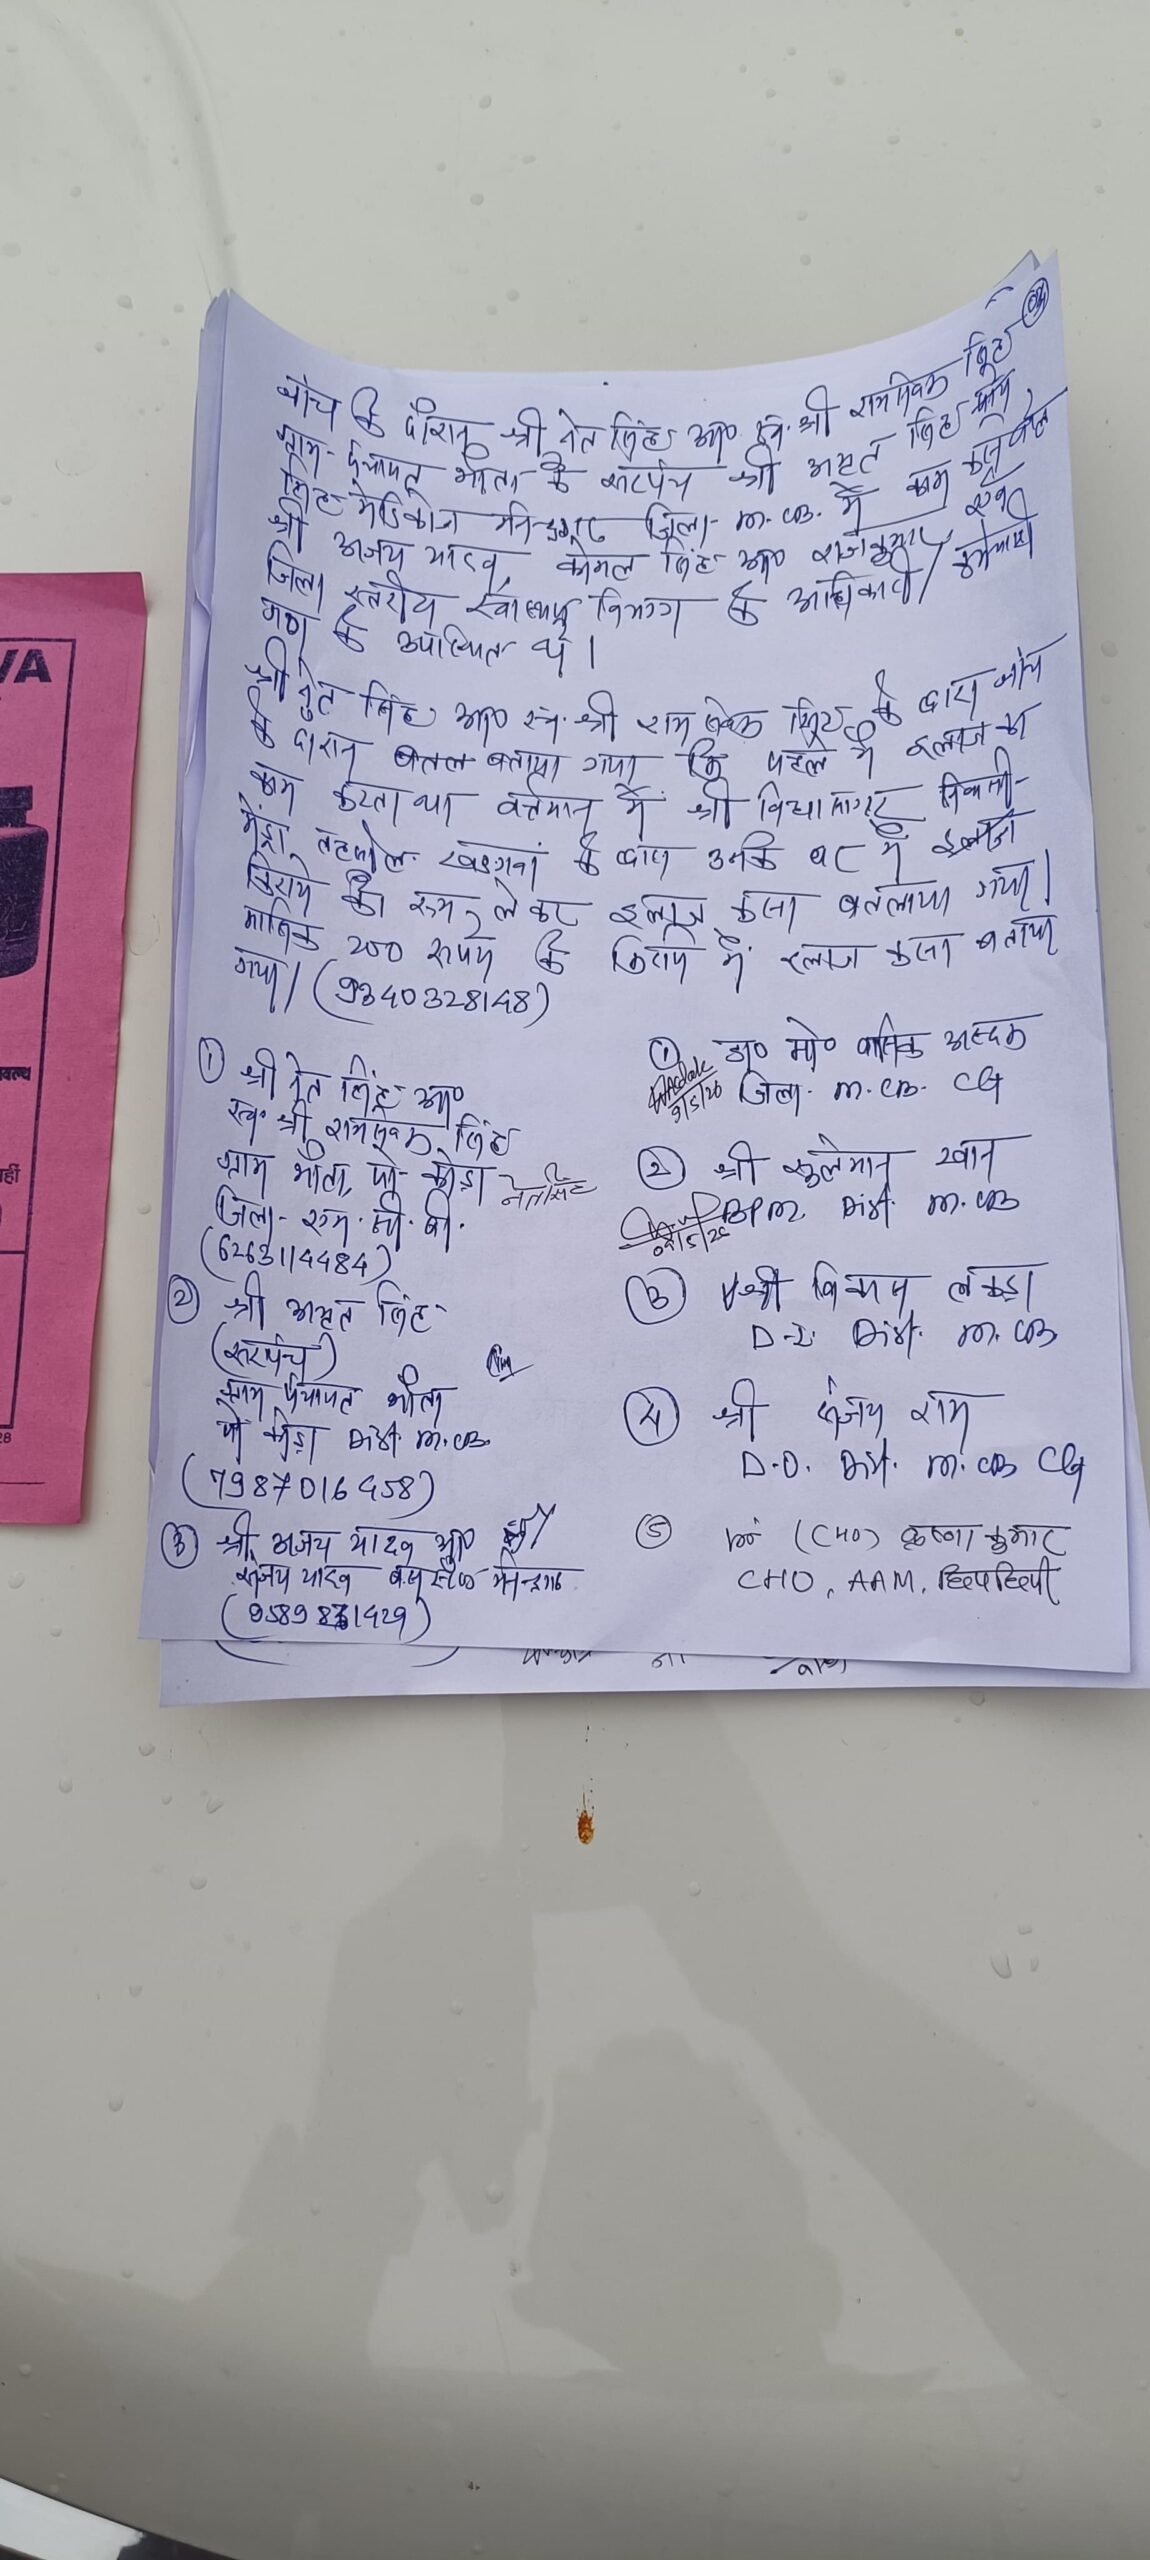 जांच के दौरान श्री नेत सिंह आ० स्व. श्री रामसेवक सिंह
ग्राम पंचायत भौता के सरपंच श्री अमृत सिंह
सिंह मेडिकोज मनेन्द्रगढ़ जिला- M.CB. में काम करने वाले
श्री अजय यादव, कोमल सिंह आ० राजकुमार एवं
जिला स्तरीय स्वास्थ्य विभाग के अधिकारी/कर्मचारी
गण के उपस्थित थे।
श्री नेत सिंह आ० स्व. श्री राम सेवक सिंह के द्वारा जांच
के दौरान बतल बताया गया कि पहले मैं इलाज का
काम करता था वर्तमान में श्री विद्यासागर निवासी-
मेंड्रा तहसील- खड़गवां के द्वारा उनके घर में इलाज
किराये की रुम लेकर इलाज करना बतलाया गया।
मासिक 200 रूपये के किराये में इलाज करना बताया
गया। (9340328148)
① श्री नेत सिंह आ०
स्व. श्री रामसेवक सिंह
ग्राम भौता, पो-
जिला- एम.सी.बी.
(6263114484)
नेतसिंह
② श्री अमृत सिंह
(सरपंच)
ग्राम पंचायत भौता
पो मेंड्रा M.CB.
(7987016458)
③ श्री अजय यादव आ० श्री
संजय यादव मनेन्द्रगढ़
① डा० मो०
जिला- M.CB. CG
9/5/26
② श्री सुलेमान खान
BPM M.CB
09/5/26
③ श्री विकास लकड़ा
D-I. M.CB
④ श्री संजय राम
D.O. M.CB CG
⑤ (CHO) कृष्णा कुमार
CHO, AAM, छिपछिपी
VA
28